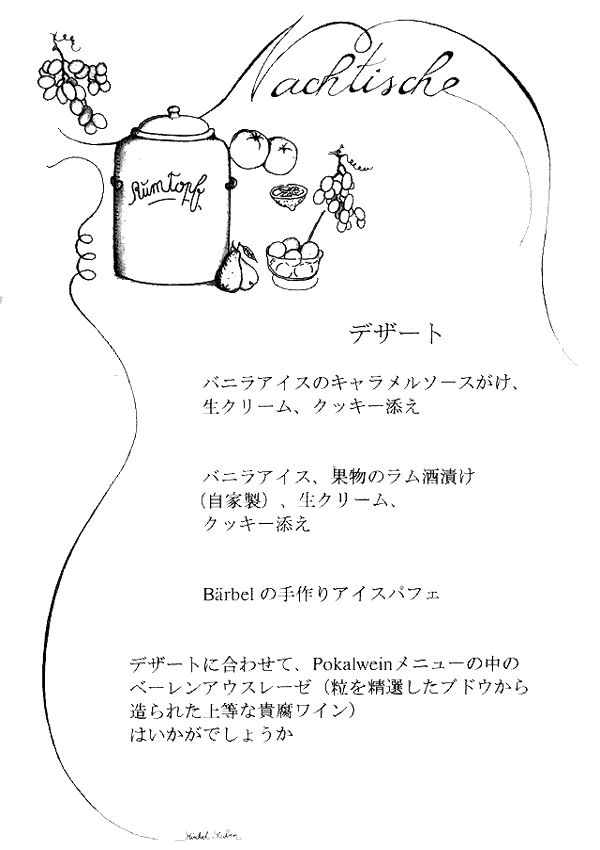 Nachtische
Rumtopf
デザート
バニラアイスのキャラメルソースがけ、
生クリーム、クッキー添え
バニラアイス、果物のラム酒漬け
(自家製)、生クリーム、
クッキー添え
Bärbel の手作りアイスパフェ
デザートに合わせて、Pokalweinメニューの中の
ベーレンアウスレーゼ（粒を精選したブドウから
造られた上等な貴腐ワイン）
はいかがでしょうか